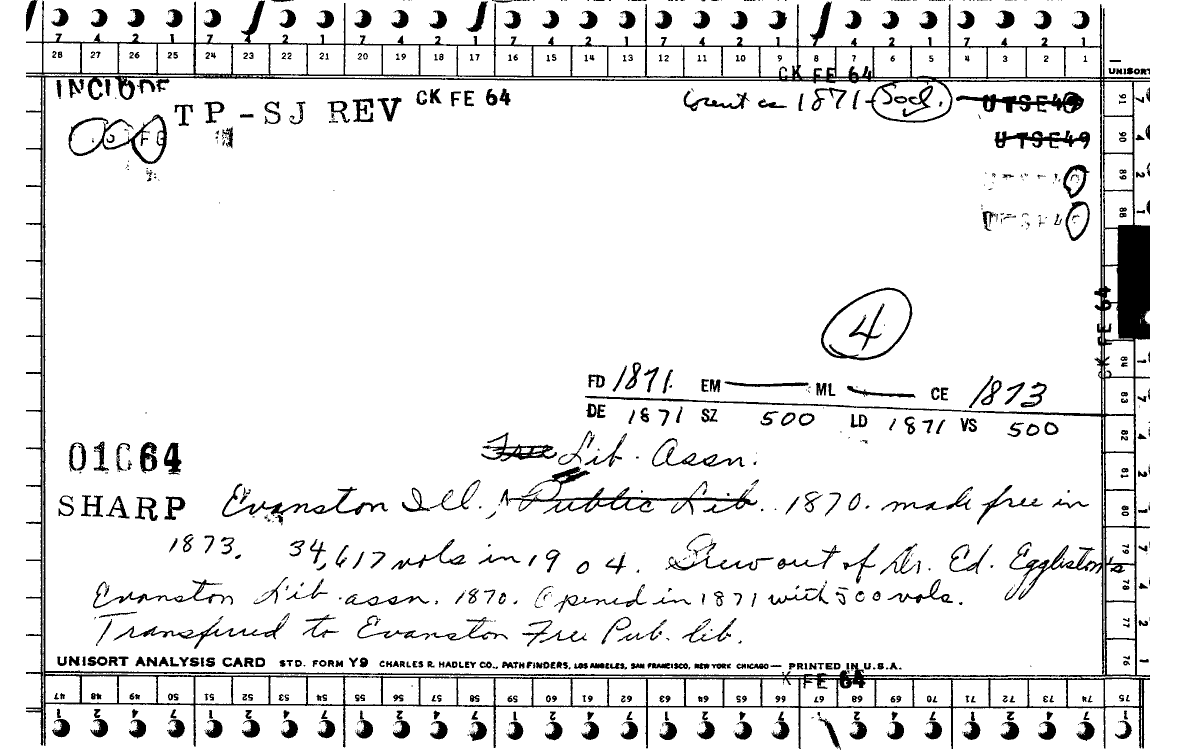 7 4 2 1 7 4 2 1 7 4 2 1 7 4 2 1 7 4 2 1 7 4 2 1 7 4 2 1
28 27 26 25 24 23 22 21 20 19 18 17 16 15 14 13 12 11 10 9 8 7 6 5 4 3 2 1
UNISORT
CK FE 64
INCLUDE
TP-SJ REV CK FE 64
Count as 1871-Socl. UTSE49
UTSE49
CK FE 64
4
FD 1871 EM ML CE 1873
DE 1871 SZ 500 LD 1871 VS 500
01064
Free Lib. Assn.
SHARP Evanston Ill., Public Lib. 1870. made free in
1873. 34,617 vols in 1904. Grew out of Dr. Ed. Eggliston's
Evanston Lib. assn. 1870. Opened in 1871 with 500 vols.
Transferred to Evanston Free Pub. lib.
UNISORT ANALYSIS CARD STD. FORM Y9 CHARLES R. HADLEY CO., PATHFINDERS, LOS ANGELES, SAN FRANCISCO, NEW YORK CHICAGO — PRINTED IN U.S.A.
K FE 64
47 48 49 50 51 52 53 54 55 56 57 58 59 60 61 62 63 64 65 66 67 68 69 70 71 72 73 74 75
1 2 4 7 1 2 4 7 1 2 4 7 1 2 4 7 1 2 4 7 1 2 4 7 1 2 4 7 1
91 90 89 88 84 83 82 81 80 79 78 77 76